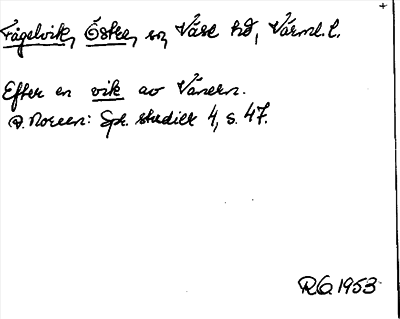 Fågelvik, Östre, sn, Väse hd, Värml. l.
Efter en vik av Vänern.
A. Noreen: Spr. studier 4, s. 47.
RO 1953